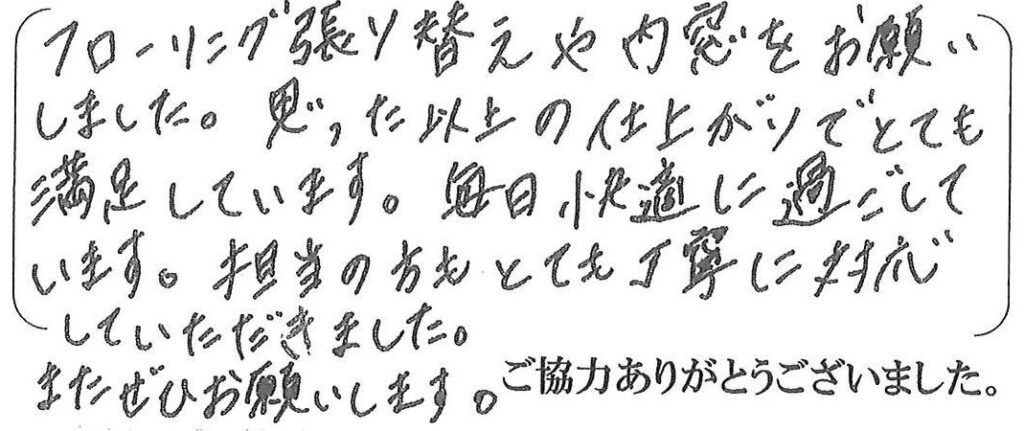 フローリング張り替えや内窓をお願い
しました。思った以上の仕上がりでとても
満足しています。毎日快適に過ごして
います。担当の方もとても丁寧に対応
していただきました。
またぜひお願いします。
ご協力ありがとうございました。